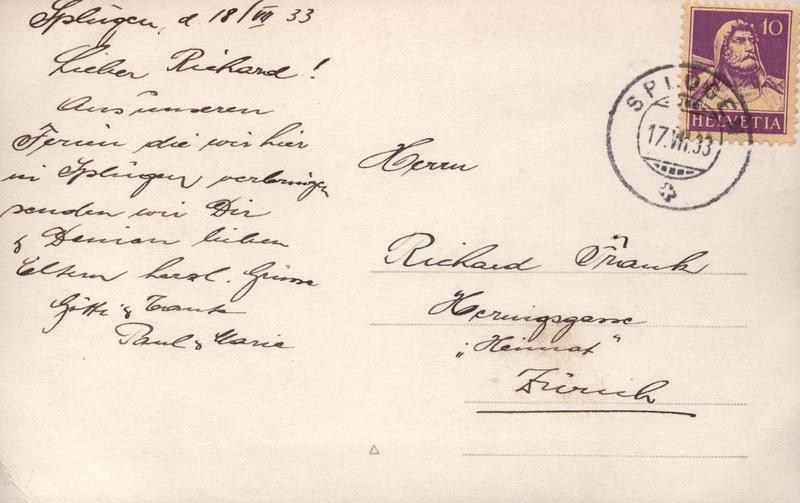 Splügen, d. 18/VII 33
Lieber Richard!
Aus unseren
Ferien die wir hier
in Splügen verbringen
senden wir Dir
& Deinen lieben
Eltern herzl. Grüsse
Götti & Tante
Paul & Marie
10
HELVETIA
SPLÜGEN
17.VII.33
Herrn
Richard Frank
"Heimat"
Zürich